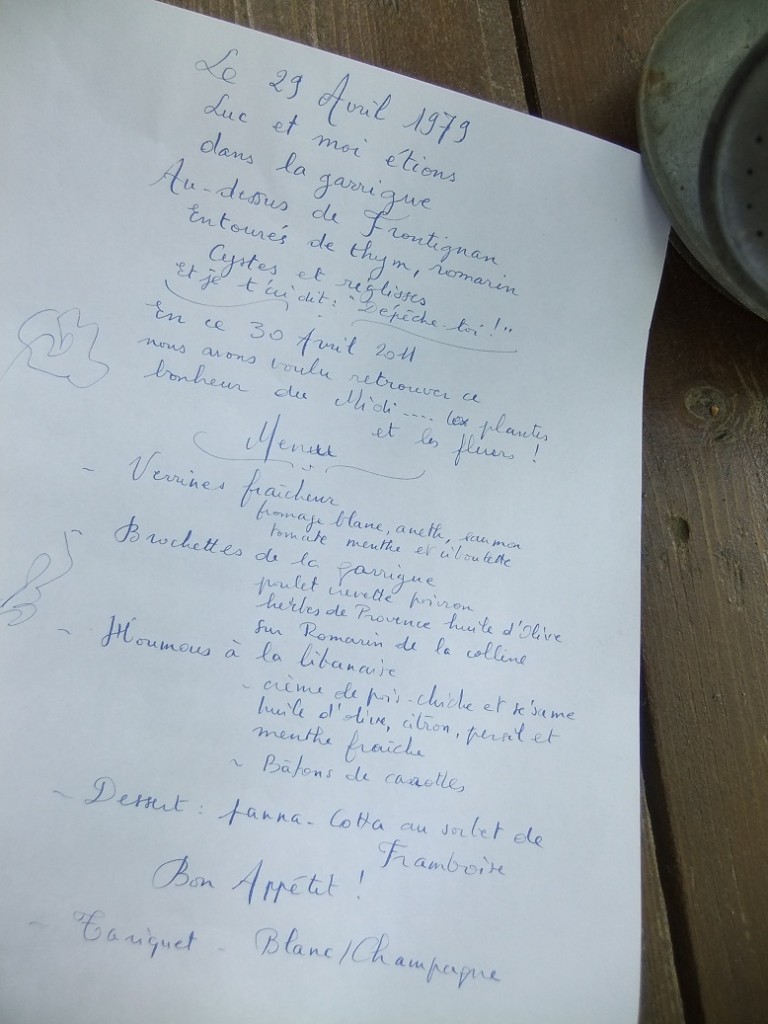 Le 29 Avril 1979
Luc et moi étions
dans la garrigue
Au-dessus de Frontignan
Entourés de thym, romarin
Cystes et réglisses
Et je t'ai dit : "Dépêche-toi !"
En ce 30 Avril 2011
nous avons voulu retrouver ce
bonheur du Midi .... les plantes
et les fleurs !
Menu
- Verrines fraîcheur
fromage blanc, aneth, saumon
tomate menthe et ciboulette
- Brochettes de la garrigue
poulet crevette poivron
herbes de Provence huile d'Olive
sur Romarin de la colline
- Houmous à la libanaise
- crème de pois-chiche et sésame
huile d'olive, citron, persil et
menthe fraîche
~ Bâtons de carottes
~ Dessert : panna-Cotta au sorbet de
Framboise
Bon Appétit !
- Tariquet - Blanc/Champagne